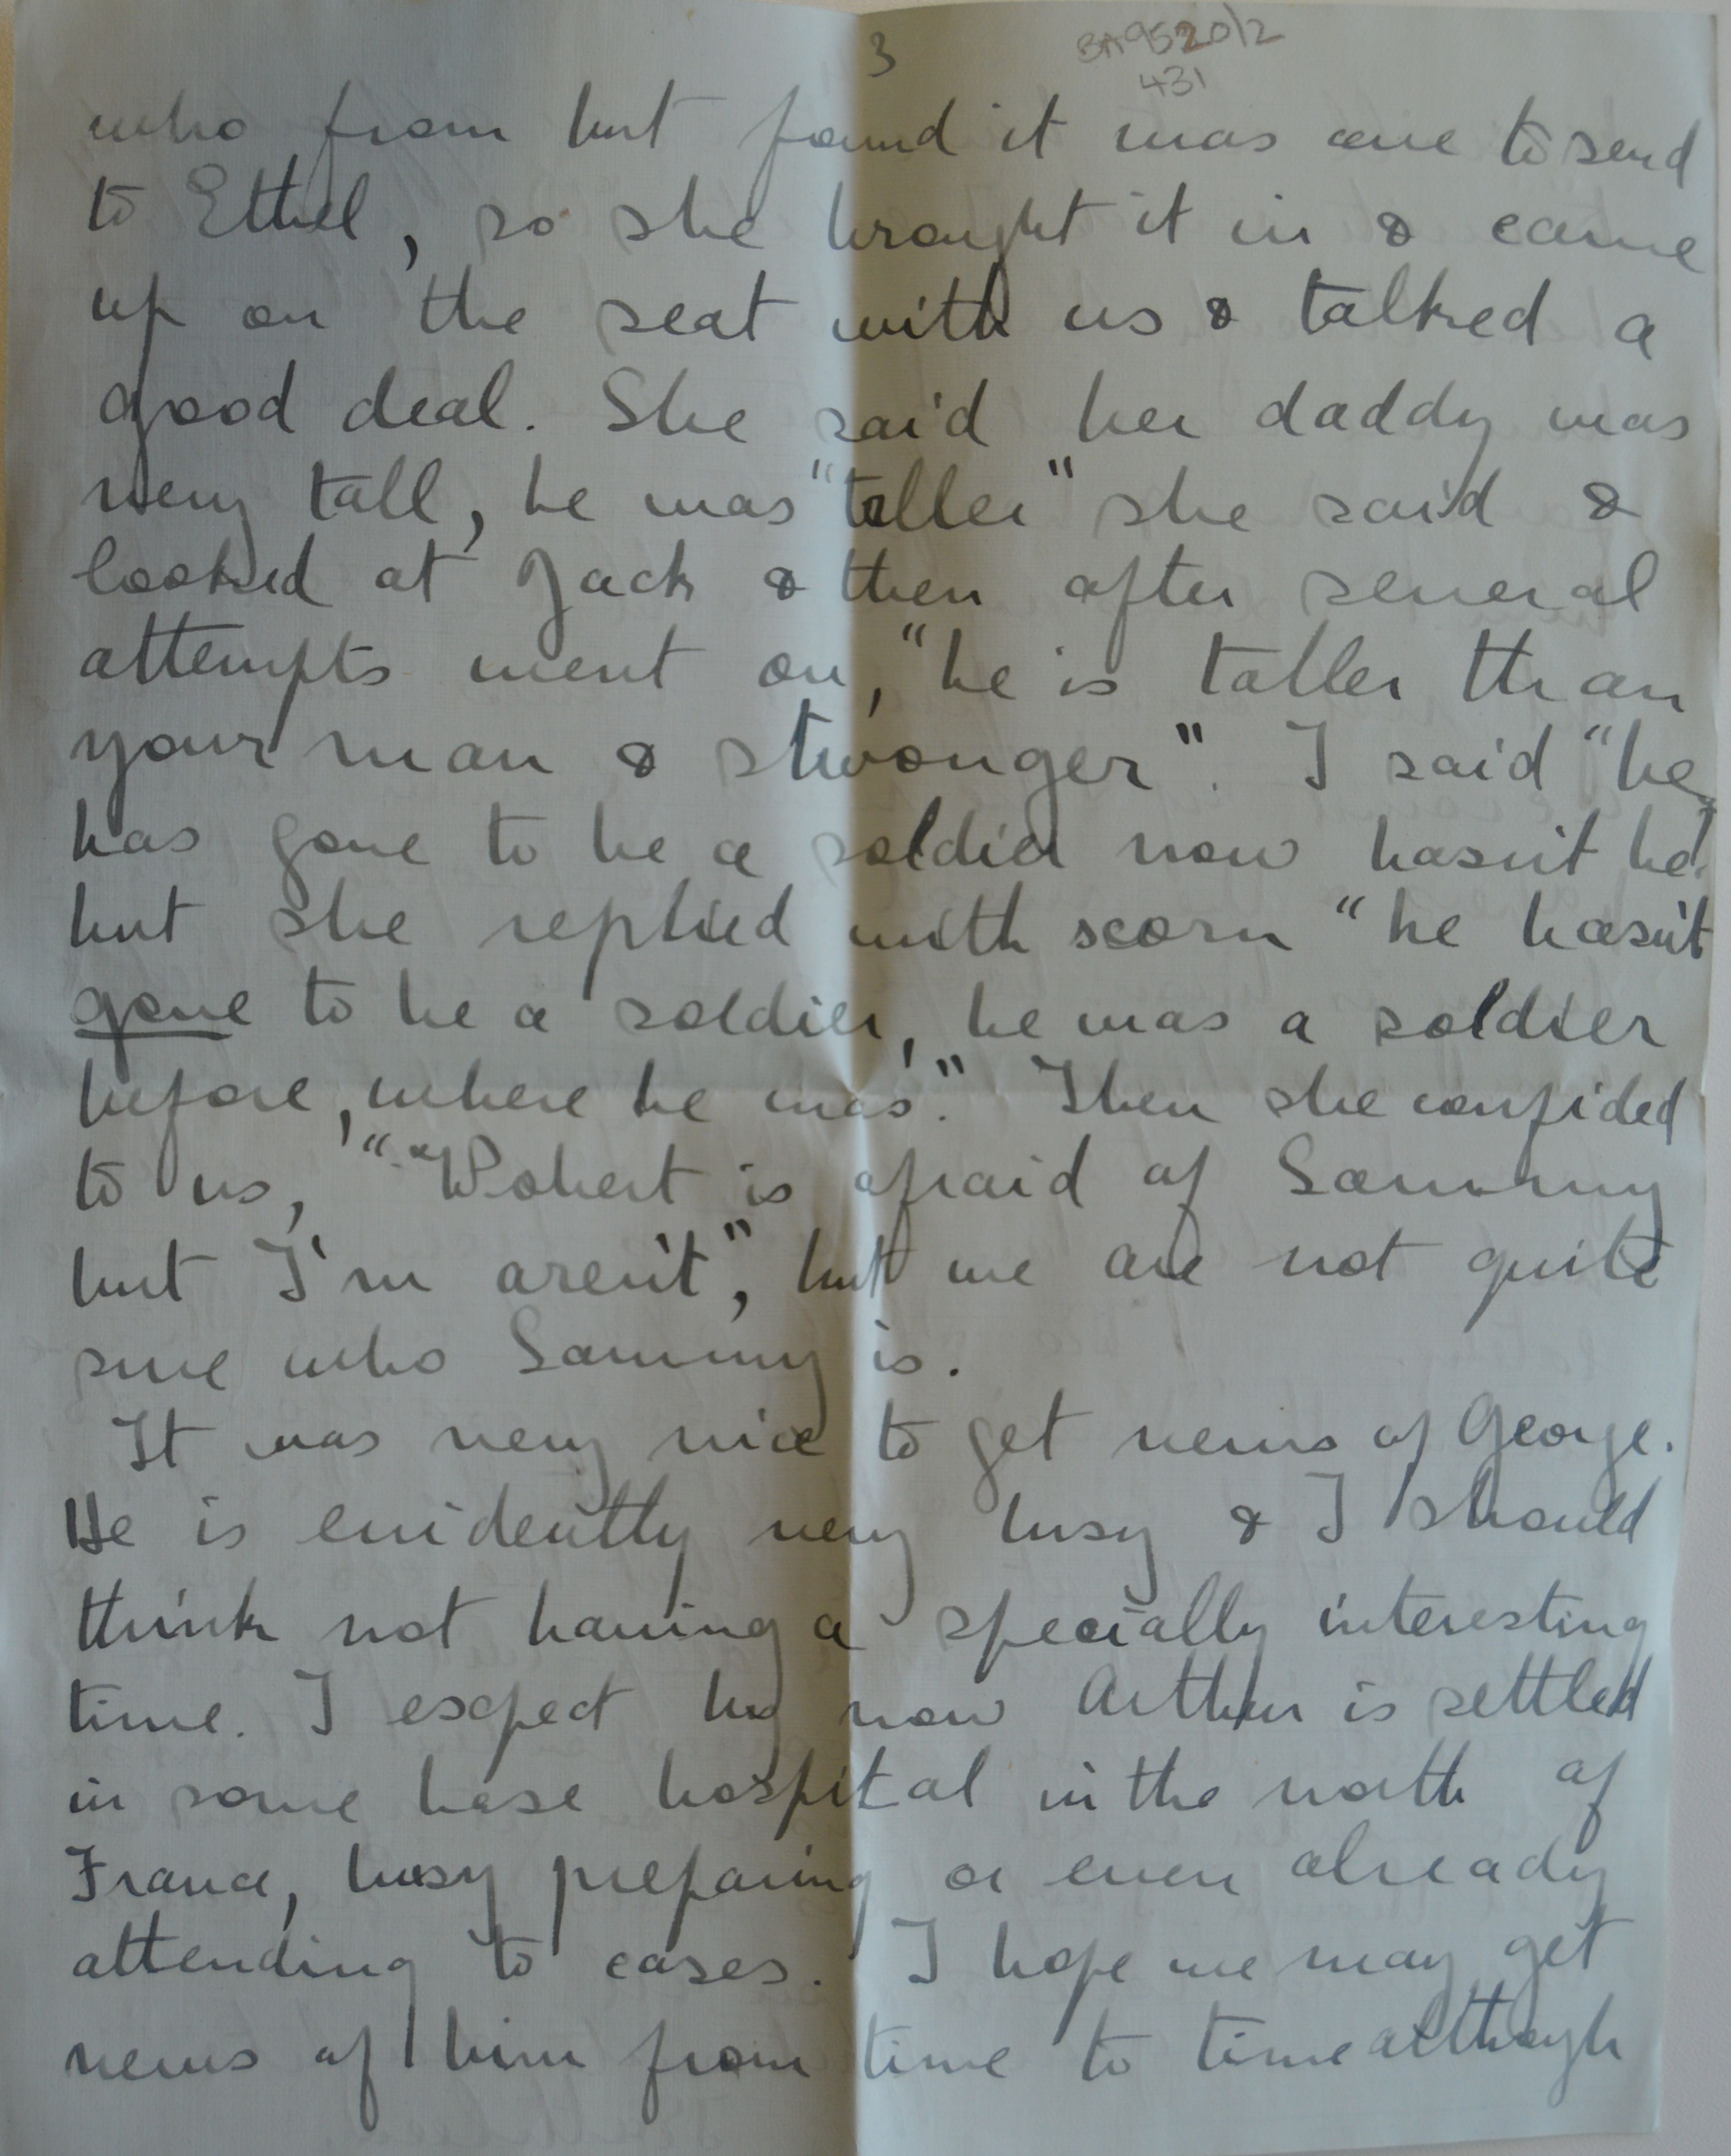 3
BA9520/2
431
who from but found it was one to send
to Ethel, so she brought it in & came
up on the seat with us & talked a
good deal. She said her daddy was
very tall, he was "taller" she said &
looked at Jack & then after several
attempts went on, "he is taller than
your man & stwonger". I said "he
has gone to be a soldier now hasn't he"
but she replied with scorn "he hasn't
gone to be a soldier, he was a soldier
before, where he was'." Then she confided
to us, "Wobert is afraid of Sammy
but I'm aren't", but we are not quite
sure who Sammy is.
It was very nice to get news of George.
He is evidently very busy & I should
think not having a specially interesting
time. I expect by now Arthur is settled
in some base hospital in the north of
France, busy preparing or even already
attending to cases. I hope we may get
news of him from time to time although